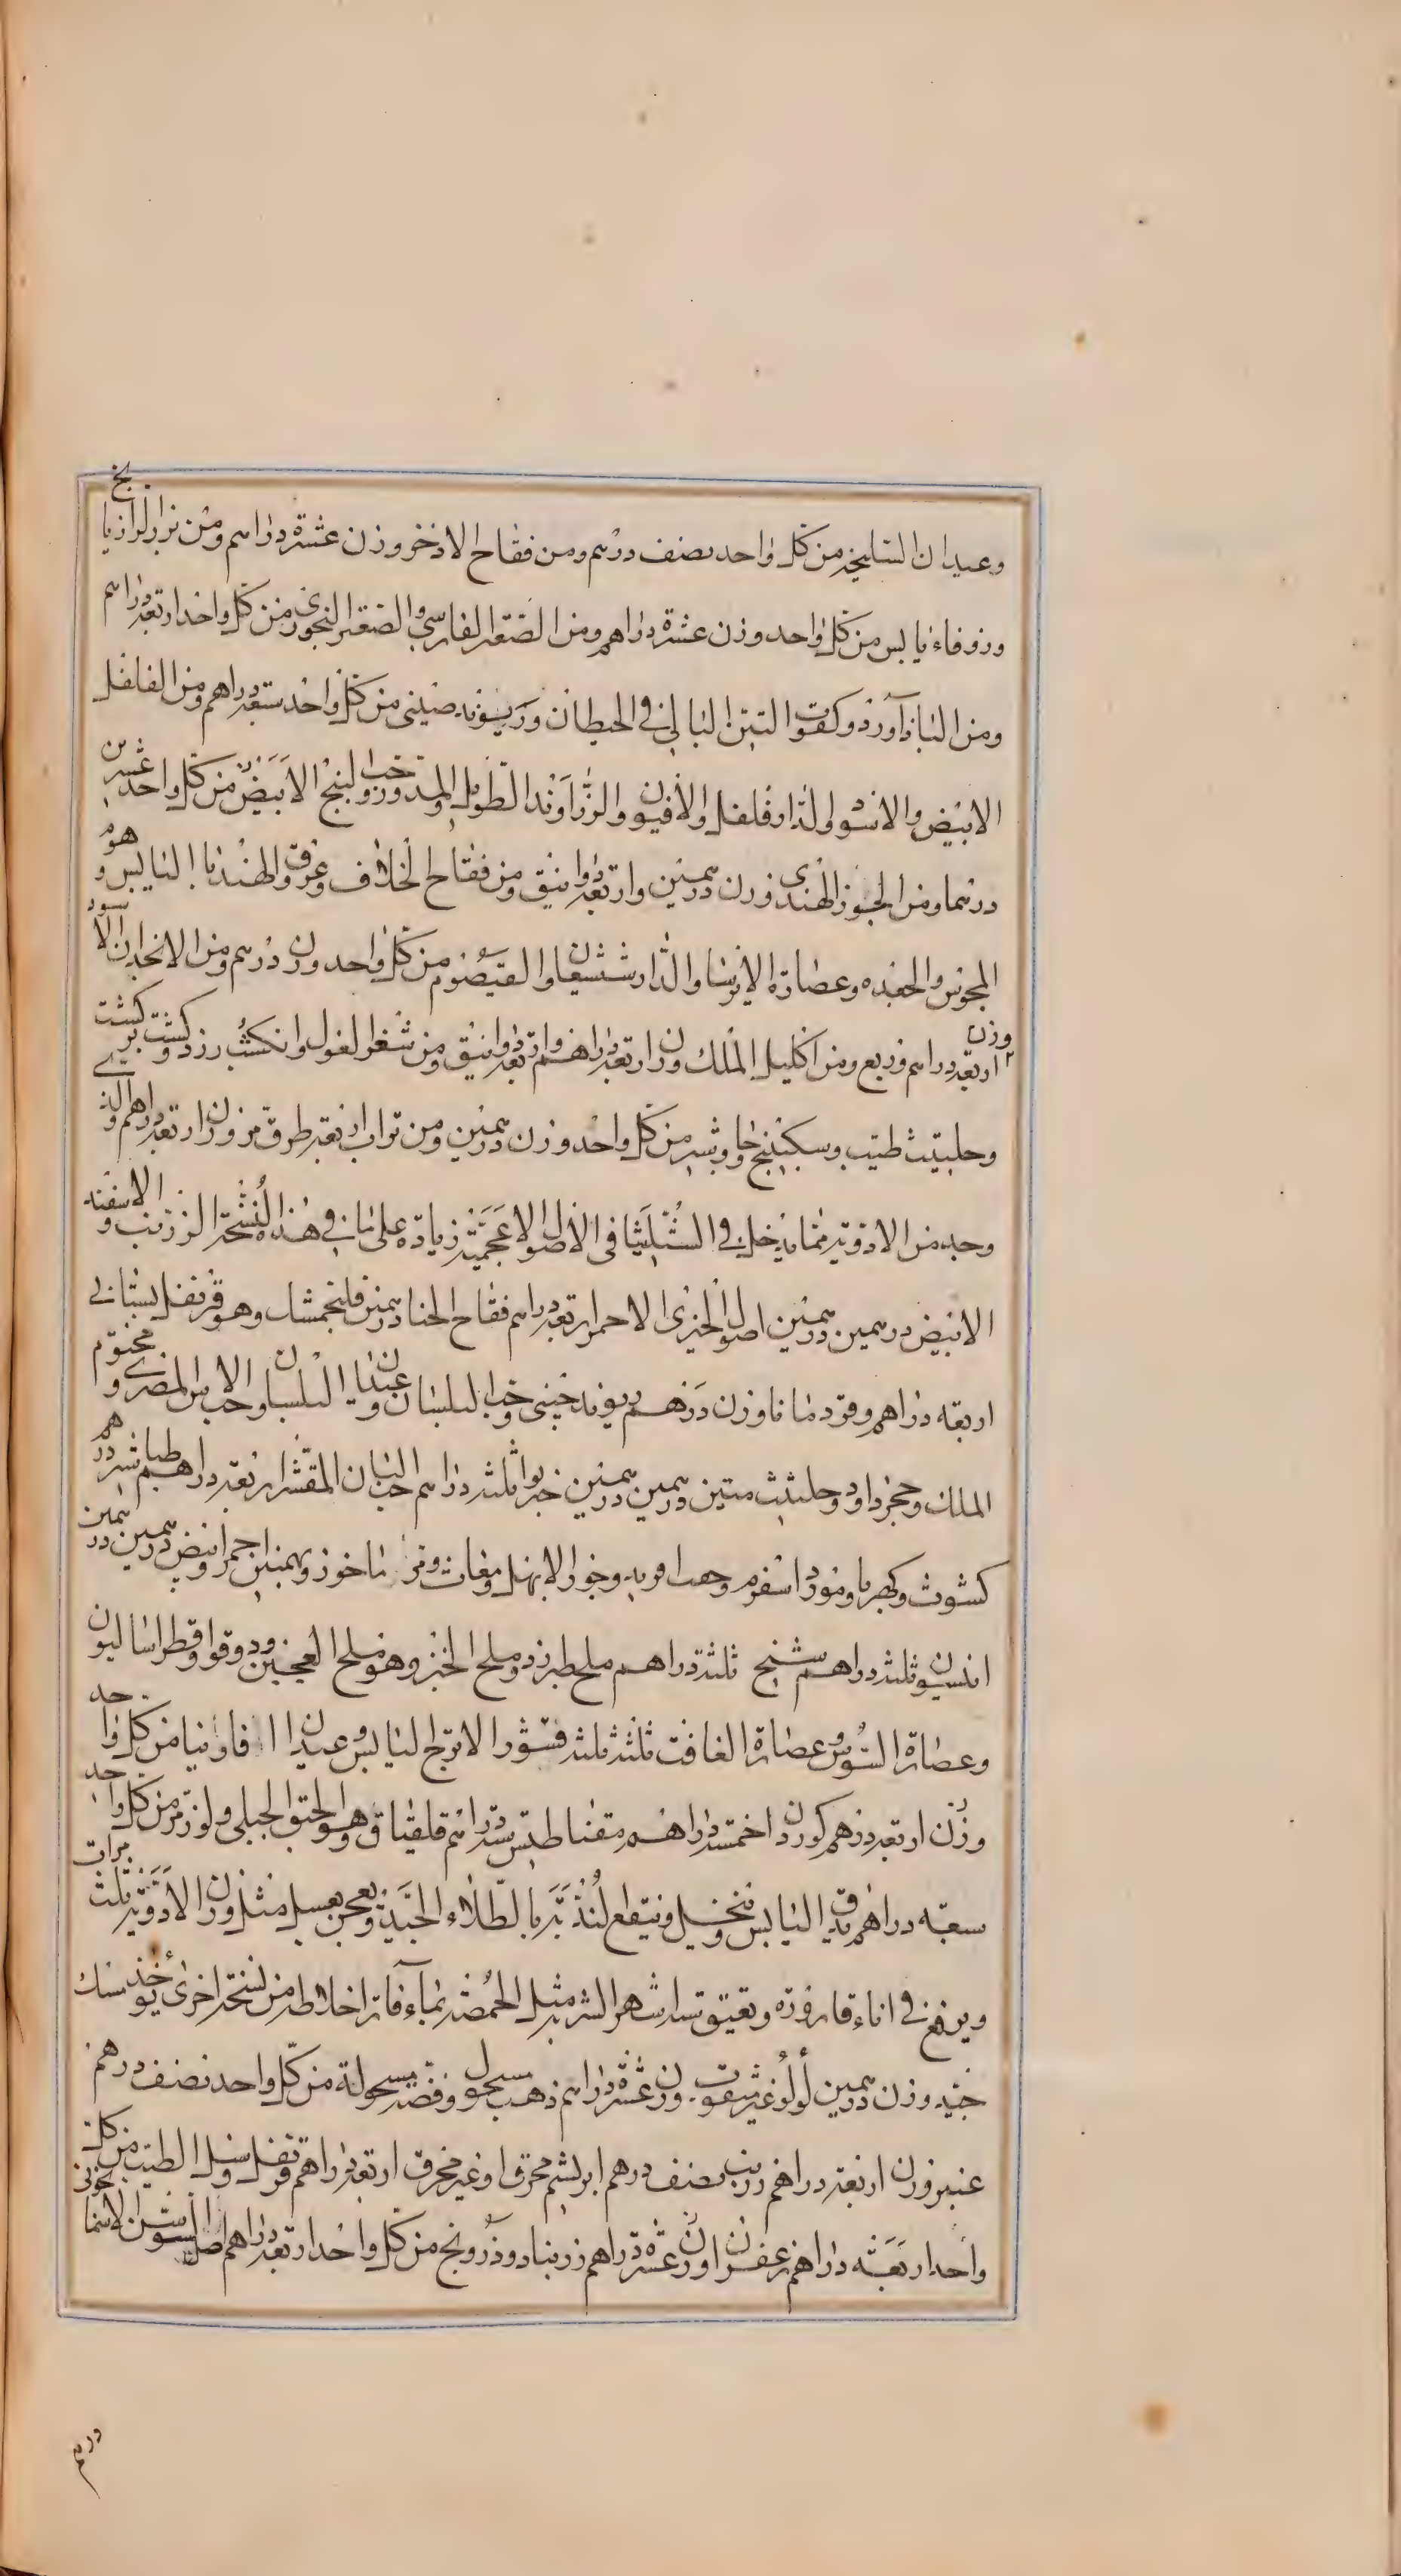 وعيدان السليخه من كل واحد نصف درهم ومن فقاح الاذخر وزن عشرة دراهم ومن بزر الرازيانج
وزوفاء يابس من كل واحد وزن عشرة دراهم ومن الصعتر الفارسي والصعتر الخوزى من كل واحد اربعة دراهم
ومن الباذآورد وكفوا التين البالى فى الحيطان وريوند صينى من كل واحد ستة دراهم ومن الفلفل
الابيض والاسود والدار فلفل والافيون والزراوند الطويل والمدور وحب البنج الابيض من كل واحد عشرين
درهما ومن الجوز الهندى وزن درهمين واربعة دوانيق ومن فقاح الخلاف وعروق الهندبا اليابس وهوم
المجوس والجعده وعصارة الايرسا والدارشيشعان والقيصوم من كل واحد وزن درهم ومن الانجدان الاسود
وزن اربعة دراهم وربع ومن اكليل الملك وزن اربعة دراهم واربعة دوانيق ومن شعر الغول وانكشت زرد وكشت بر كشت
وحلتيت طيب وسكبينج وجاوشير من كل واحد وزن درهمين ومن تراب اربعة طرق من وزن اربعة دراهم والذى
وجد من الادوية مما يدخل فى الشليثا فى الاصول الاعجمية زيادة على ما فى هذه النسخة الزرنب والاسفند
الابيض درهمين درهمين اصول الخيرى الاحمر اربعة دراهم فقاح الحنا درهمين فلنجمشك وهو قرنفل بستانى
اربعه دراهم وقردمانا وزن درهم ريوند صينى وحب البلسان وعيدان البلسان وحب الاس المصرى ومختوم
الملك وحجر داود وحلتيت منتن درهمين درهمين خربوا ثلثه دراهم حب البان المقشر اربعة دراهم طباشير درهم
كشوث وكهربا ومورد اسفرم وجوز الابهل ومغاث وبهمنين احمر وابيض درهمين درهمين
انيسون ثلثه دراهم شيح ثلثة دراهم ملح طبرزد وملح الخبز وهو ملح العجين ودوقوا وقطراساليون
وعصارة السوس وعصارة الغافت ثلثة ثلثة قشور الاترج اليابس وعيدان الفاونيا من كل واحد
وزن اربعة دراهم كوردن خمسة دراهم مقناطيس ستة دراهم فلفلياق وهو الحبق الجبلى ولوز مر من كل واحد
سبعه دراهم يدق اليابس وينخل وينقع لنديه بالطلاء الجيد ويعجن بعسل مثل وزن الادوية ثلث مرات
ويرفع فى اناء قارورة ويعتق ستة اشهر الشربة مثل الحمصة بماء فاتر اخلاطه من نسخة اخرى يؤخذ مسك
جيد وزن درهمين لؤلؤ غير مثقوب وزن عشرة دراهم ذهب مسحول وفضة مسحولة من كل واحد نصف درهم
عنبر وزن اربعة دراهم زرنب نصف درهم ابريشم محرق او غير محرق اربعة دراهم قرنفل وسنبل الطيب من كل
واحد اربعة دراهم زعفران وزن عشرة دراهم زرنباد ودرونج من كل واحد اربعة دراهم اصل السوسن الاسمانجونى
درهم